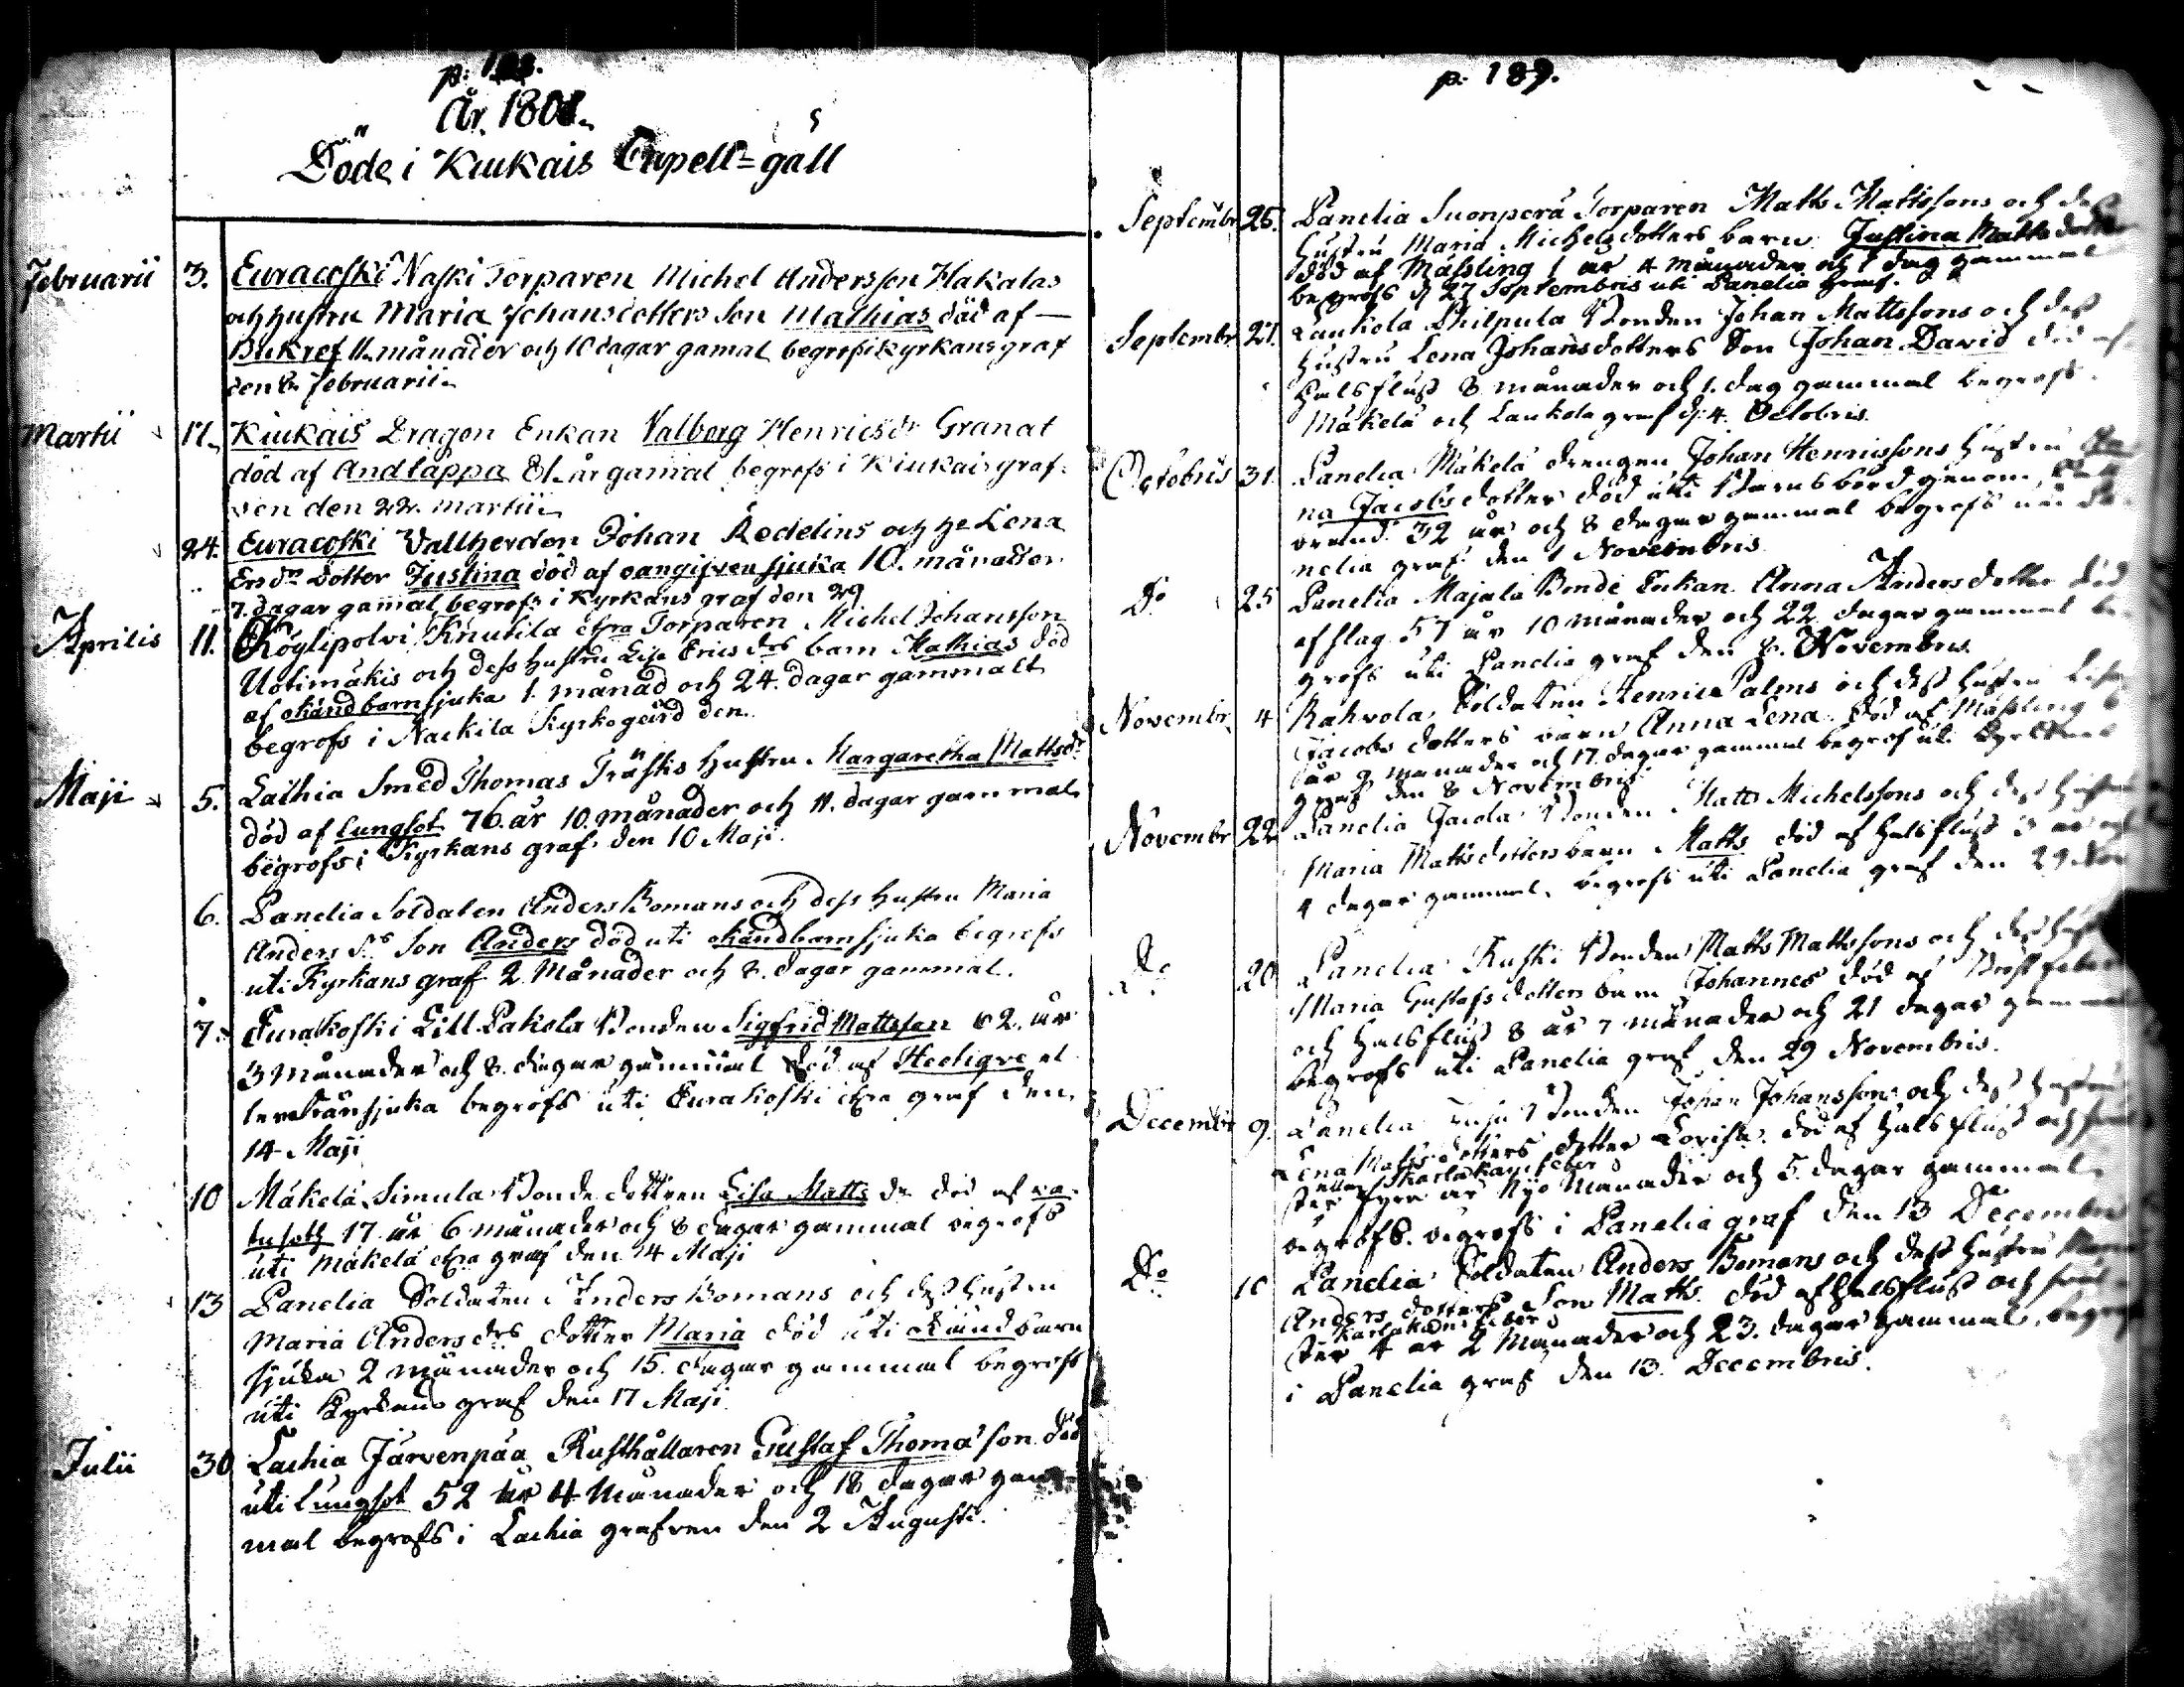 p: 188.
År 1808.
Döde i Kiukais Capell=gäll
Februarii 3. Euracoski Naski Torparen Michel Andersson Hakalas
och hustru Maria Johansdotters Son Mathias död af —
Bukref 11. månader och 10 dagar gamal begrofs i kyrkans graf
den 8. Februarii.
Martii 17. Kiukais Dragon Enkan Valborg Henricsdr Granat
död af Andtäppa 81. år gamal begrofs i Kiukais graf-
ven den 22. martii.
24. Euracoski Vallherden Johan Redelins och he Lena
Ersdrs Dotter Justina död af oangifven sjuka 10. månader
7. dagar gamal begrofs i Kyrkans graf den 29
Aprilis 11. Köylipolvi Knutila etc Torparen Michel Johansson
Uotimäkis och dess hustru Lisa Erics drs barn Mathias död
af okänd barnsjuka 1. månad och 24. dagar gammalt
begrofs i Nackila Kyrkogård den.
Maji 5. Laihia Smed Thomas Träsks hustru Margaretha Mattsdr
död af Lungsot 76. år 10. månader och 11. dagar gammal
begrofs i Kyrkans graf. den 10 Maji.
6. Panelia Soldaten Anders Bomans och dess hustru Maria
Anders ds Son Anders död uti okänd barnsjuka begrofs
uti Kyrkans graf 2 Månader och 8. dagar gammal.
7. Eurakoski Lill Pakola Bonden Sigfrid Mattsson 62. år
3 Månader och 8. dagar gammal död af Hectique el
ler Tränsjuka begrofs uti Eurakoski graf den.
14 Maji
10 Mäkelä Simula Bonde dottren Lisa Matts dr död af
17 år 6 månader och 8 dagar gammal begrofs
uti Mäkelä graf den 14 Maji
13 Panelia Soldaten Anders Bomans och dess hustru
Maria Anders drs dotter Maria död uti okänd barn
sjuka 2 månader och 15. dagar gammal begrofs
uti Kyrkans graf den 17 Maji
Julii 30 Lachia Järvenpää Rusthållaren Gustaf Thomasson död
uti Lungsot 52 år 4 Månader och 18 dagar gam-
mal begrofs i Lachia grafven den 2 Augusti.
p. 189.
Septembr 25. Panelia Suonperä Torparen Matts Mattssons och dess
hustru Maria Michelsdotters barn Justina Mattsdotter
död af Mässling 1 år 4 månader och 1 dag gammal
begrofs d 27 Septembris uti Panelia graf.
Septembr 27. Laukola Skilpula Bonden Johan Mattssons och dess
hustru Lena Johansdotters Son Johan David död af
Halsfluss 8 månader och 1. dag gammal begrofs
Mäkelä och Laukola graf d: 4. Octobris.
Octobris 31. Panelia Mäkelä drengen Johan Henricssons hustru
na Jacobsdotter död uti Barnsbörd genom
32 år och 8 dagar gammal begrofs uti Pa
nelia graf den 1 Novembris
Do 25 Panelia Majala Bonde Enkan Anna Andersdotter död
af slag 57 år 10 månader och 22 dagar gammal be
grofs uti Panelia graf den 8. Novembris
Novembr. 4 Rahvola Soldaten Henric Palms och dess hustru Lisa
Jacobs dotters barn Anna Lena. död af Mässling 6
år 9 månader och 17. dagar gammal begrof uti Kyrkans
graf den 8 Novembris
Novembr 22 Panelia Jacola Bonden Matts Michelssons och dess hustru
Maria Mattsdotters barn Matts död af halsfluss 3 år och
4 dagar gammal. begrofs uti Panelia graf den 29. Nov
Do 20 Panelia Kuski Bonden Matts Mattssons och dess hustru
Maria Gustafsdotters barn Johannes död af Bröst feber
och Halsfluss 8 år 7 månader och 21 dagar gammal
begrofs uti Panelia graf den 29 Novembris.
Decembr 9. Panelia Bonden Johan Johanssons och dess hustru
Lena Matts dotters dotter Lovisa. död af Halsfluss och
eller Skarlakans feber
fyra år Nijo Månader och 5. dagar gammal
begrofs. begrofs i Panelia graf den 13 Decembris
Do 10 Panelia Soldaten Anders Bomans och dess hustru Maria
Anders dotters Son Matts. död af Halsfluss och
Karlakans feber
4 år 2 Månader och 23. dagar gammal, begrofs
i Panelia graf den 13. Decembris.